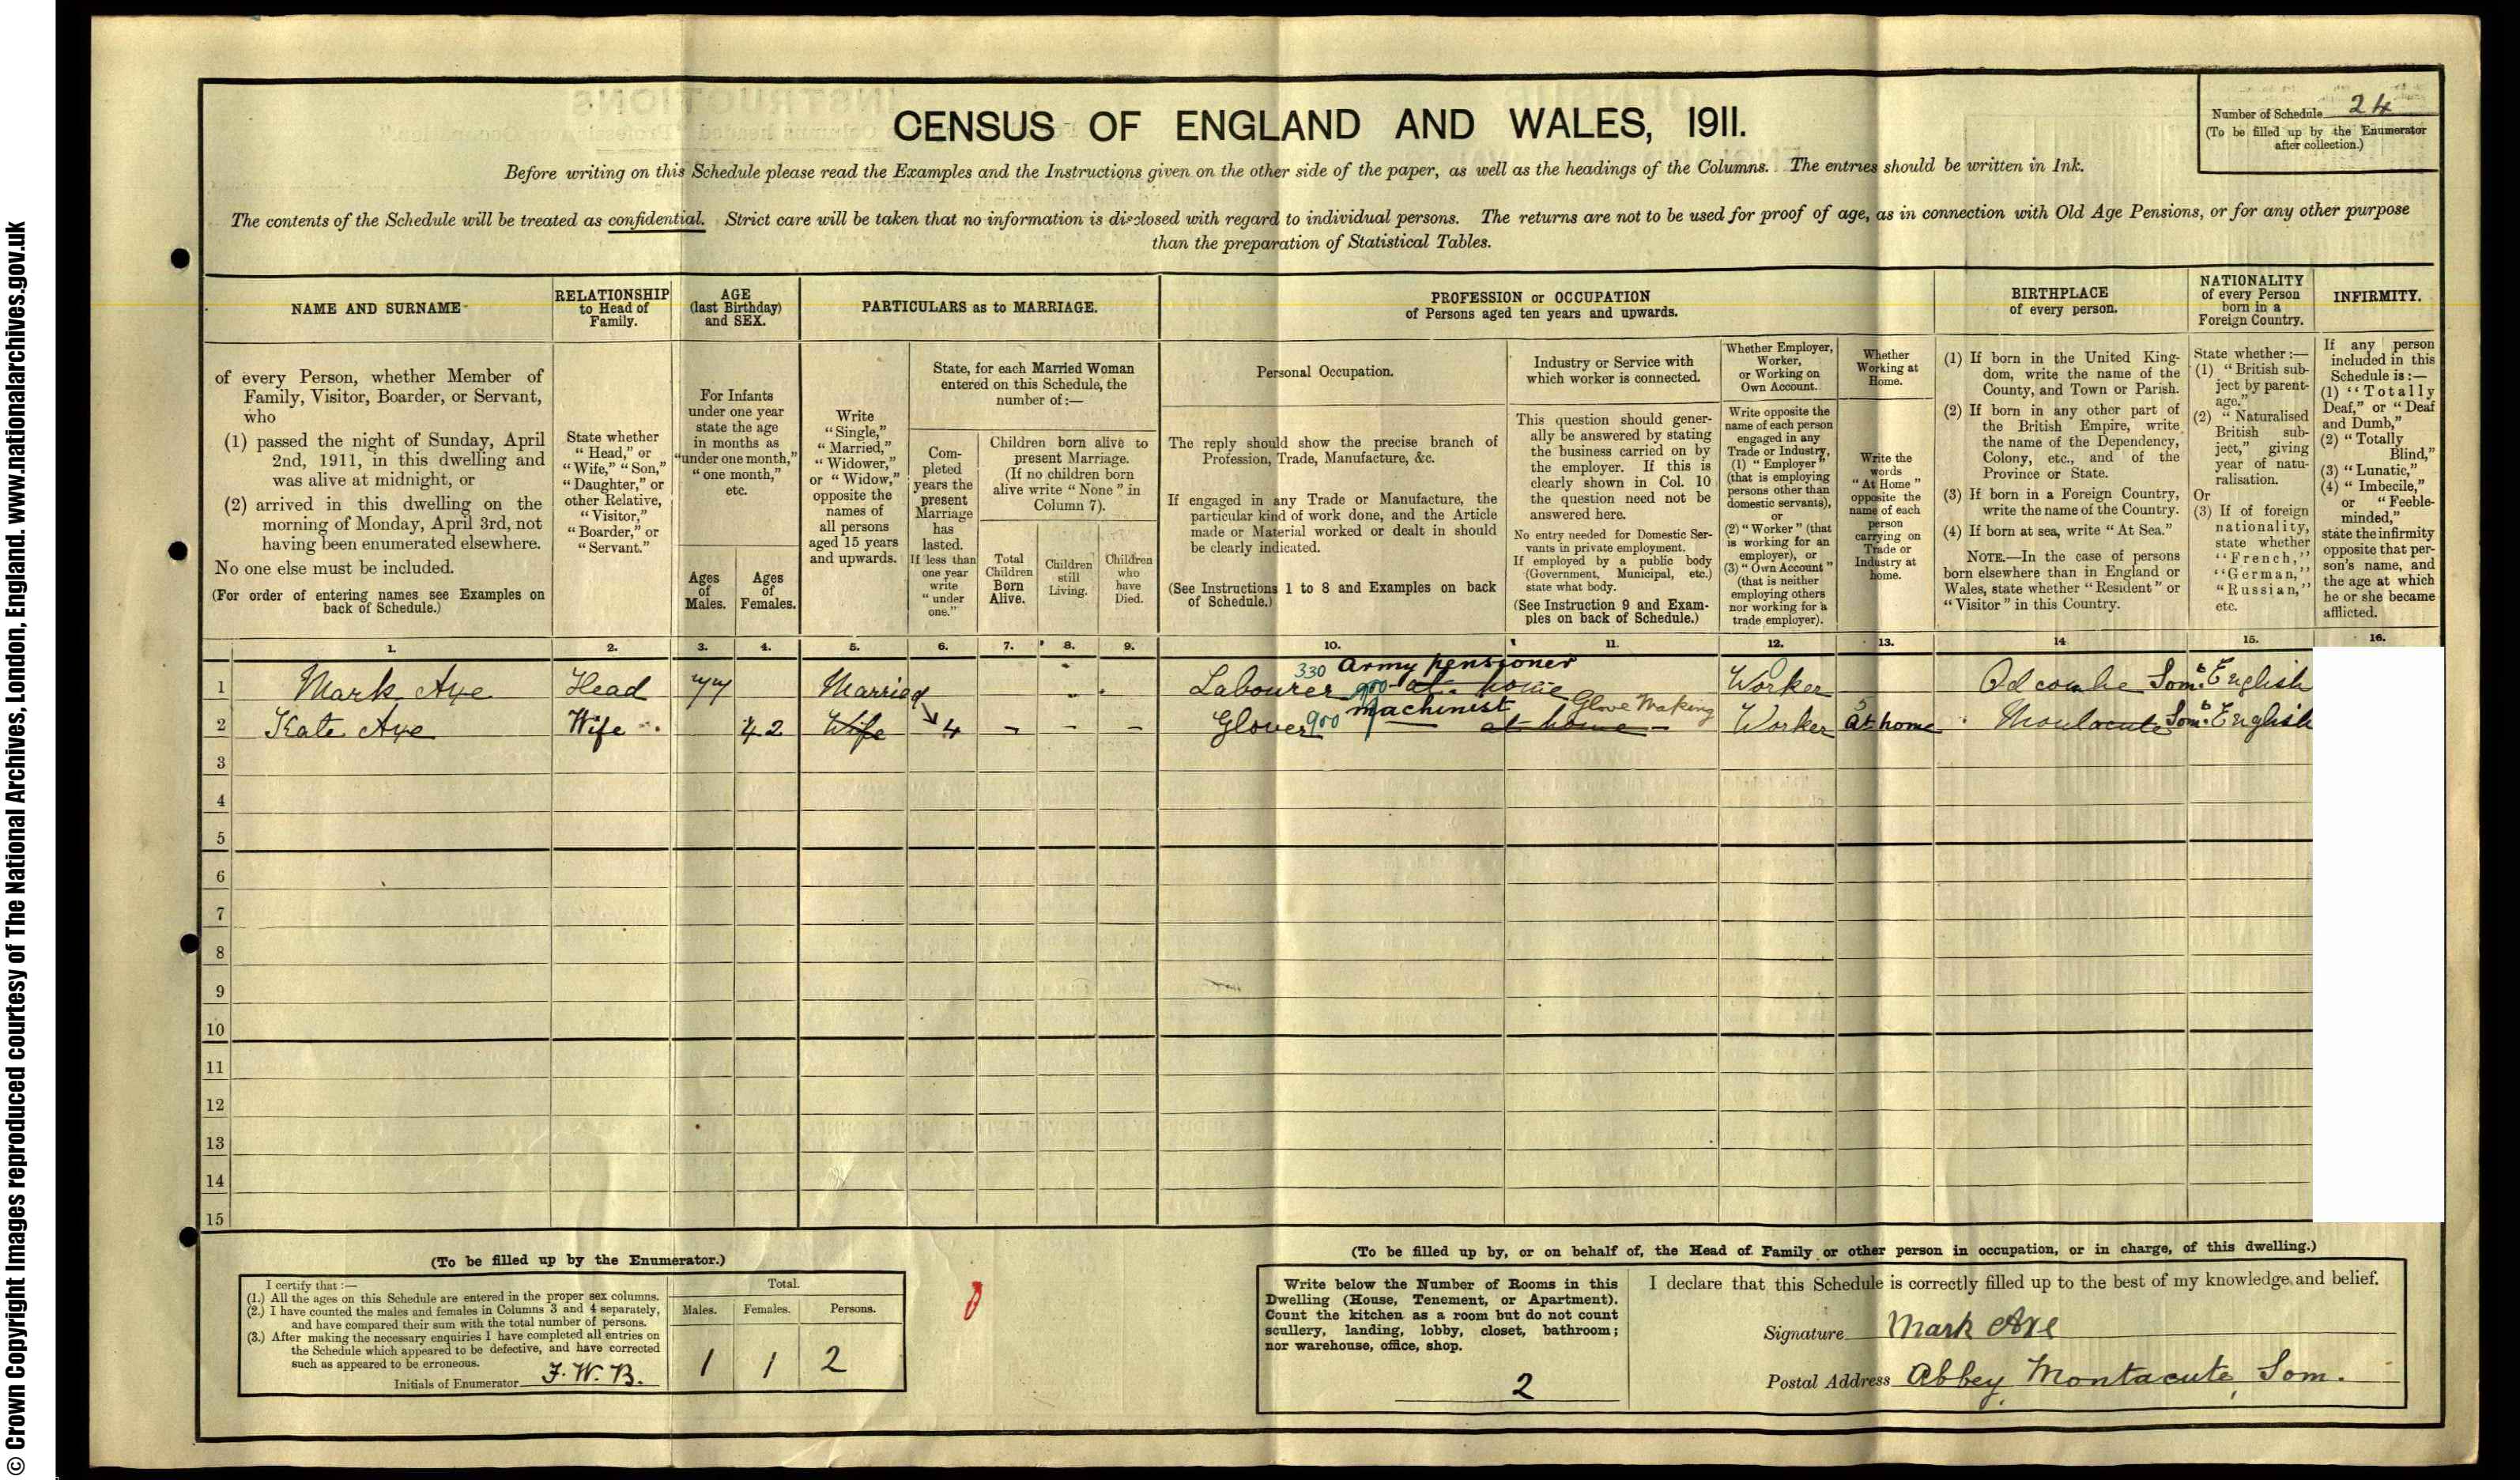 © Crown Copyright Images reproduced courtesy of The National Archives, London, England. www.nationalarchives.gov.uk
CENSUS OF ENGLAND AND WALES, 1911.
Number of Schedule 24
(To be filled up by the Enumerator
after collection.)
Before writing on this Schedule please read the Examples and the Instructions given on the other side of the paper, as well as the headings of the Columns. The entries should be written in Ink.
The contents of the Schedule will be treated as confidential. Strict care will be taken that no information is disclosed with regard to individual persons. The returns are not to be used for proof of age, as in connection with Old Age Pensions, or for any other purpose
than the preparation of Statistical Tables.
NAME AND SURNAME
of every Person, whether Member of
Family, Visitor, Boarder, or Servant,
who
(1) passed the night of Sunday, April
2nd, 1911, in this dwelling and
was alive at midnight, or
(2) arrived in this dwelling on the
morning of Monday, April 3rd, not
having been enumerated elsewhere.
No one else must be included.
(For order of entering names see Examples on
back of Schedule.)
RELATIONSHIP
to Head of
Family.
State whether
"Head," or
"Wife," "Son,"
"Daughter," or
other Relative,
"Visitor,"
"Boarder," or
"Servant."
AGE
(last Birthday)
and SEX.
For Infants
under one year
state the age
in months as
"under one month,"
"one month,"
etc.
Ages
of
Males.
Ages
of
Females.
PARTICULARS as to MARRIAGE.
Write
"Single,"
"Married,"
"Widower,"
or "Widow,"
opposite the
names of
all persons
aged 15 years
and upwards.
State, for each Married Woman
entered on this Schedule, the
number of:—
Com-
pleted
years the
present
Marriage
has
lasted.
If less than
one year
write
"under
one."
Children born alive to
present Marriage.
(If no children born
alive write "None" in
Column 7).
Total
Children
Born
Alive.
Children
still
Living.
Children
who
have
Died.
PROFESSION or OCCUPATION
of Persons aged ten years and upwards.
Personal Occupation.
The reply should show the precise branch of
Profession, Trade, Manufacture, &c.
If engaged in any Trade or Manufacture, the
particular kind of work done, and the Article
made or Material worked or dealt in should
be clearly indicated.
(See Instructions 1 to 8 and Examples on back
of Schedule.)
Industry or Service with
which worker is connected.
This question should gener-
ally be answered by stating
the business carried on by
the employer. If this is
clearly shown in Col. 10
the question need not be
answered here.
No entry needed for Domestic Ser-
vants in private employment.
If employed by a public body
(Government, Municipal, etc.)
state what body.
(See Instruction 9 and Exam-
ples on back of Schedule.)
Whether Employer,
Worker,
or Working on
Own Account.
Write opposite the
name of each person
engaged in any
Trade or Industry,
(1) "Employer"
(that is employing
persons other than
domestic servants),
or
(2) "Worker" (that
is working for an
employer), or
(3) "Own Account"
(that is neither
employing others
nor working for a
trade employer).
Whether
Working at
Home.
Write the
words
"At Home"
opposite the
name of each
person
carrying on
Trade or
Industry at
home.
BIRTHPLACE
of every person.
(1) If born in the United King-
dom, write the name of the
County, and Town or Parish.
(2) If born in any other part of
the British Empire, write
the name of the Dependency,
Colony, etc., and of the
Province or State.
(3) If born in a Foreign Country,
write the name of the Country.
(4) If born at sea, write "At Sea."
NOTE.—In the case of persons
born elsewhere than in England or
Wales, state whether "Resident" or
"Visitor" in this Country.
NATIONALITY
of every Person
born in a
Foreign Country.
State whether:—
(1) "British sub-
ject by parent-
age."
(2) "Naturalised
British sub-
ject," giving
year of natu-
ralisation.
Or
(3) If of foreign
nationality,
state whether
"French,"
"German,"
"Russian,"
etc.
INFIRMITY.
If any person
included in this
Schedule is:—
(1) "Totally
Deaf," or "Deaf
and Dumb,"
(2) "Totally
Blind,"
(3) "Lunatic,"
(4) "Imbecile,"
or "Feeble-
minded,"
state the infirmity
opposite that per-
son's name, and
the age at which
he or she became
afflicted.
1. 2. 3. 4. 5. 6. 7. 8. 9. 10. 11. 12. 13. 14 15. 16.
330 Army pensioner
1 Mark Axe Head 77 Married Labourer 900 at home Worker Odcombe Som. English
machinist Glove Making
2 Kate Axe Wife 42 Wife 4 – – – Glover 900 at home Worker At home Montacute Som. English
3
4
5
6
7
8
9
10
11
12
13
14
15
(To be filled up by the Enumerator.)
I certify that:—
(1.) All the ages on this Schedule are entered in the proper sex columns.
(2.) I have counted the males and females in Columns 3 and 4 separately,
and have compared their sum with the total number of persons.
(3.) After making the necessary enquiries I have completed all entries on
the Schedule which appeared to be defective, and have corrected
such as appeared to be erroneous.
Initials of Enumerator F. W. B.
Total.
Males. Females. Persons.
1 1 2
(To be filled up by, or on behalf of, the Head of Family or other person in occupation, or in charge, of this dwelling.)
Write below the Number of Rooms in this
Dwelling (House, Tenement, or Apartment).
Count the kitchen as a room but do not count
scullery, landing, lobby, closet, bathroom;
nor warehouse, office, shop.
2
I declare that this Schedule is correctly filled up to the best of my knowledge and belief.
Signature Mark Axe
Postal Address Abbey, Montacute, Som.